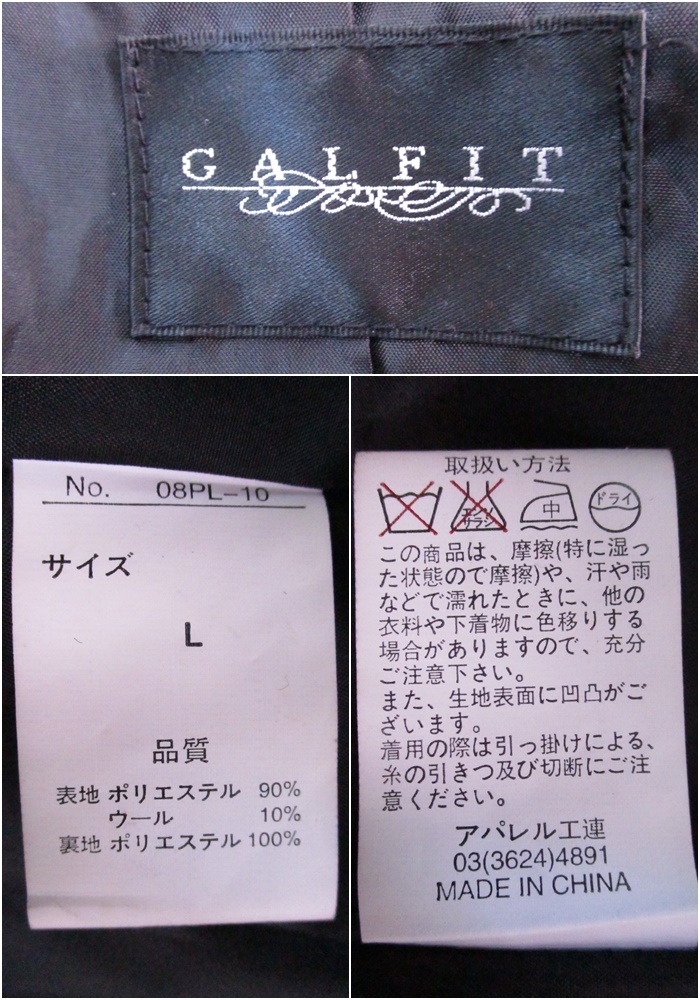 GALFIT
No. 08PL-10
サイズ
L
品質
表地 ポリエステル 90%
ウール 10%
裏地 ポリエステル 100%
取扱い方法
エンソ
サラシ
中
ドライ
この商品は、摩擦(特に湿っ
た状態ので摩擦)や、汗や雨
などで濡れたときに、他の
衣料や下着物に色移りする
場合がありますので、充分
ご注意下さい。
また、生地表面に凹凸がご
ざいます。
着用の際は引っ掛けによる、
糸の引きつ及び切断にご注
意ください。
アパレル工連
03(3624)4891
MADE IN CHINA